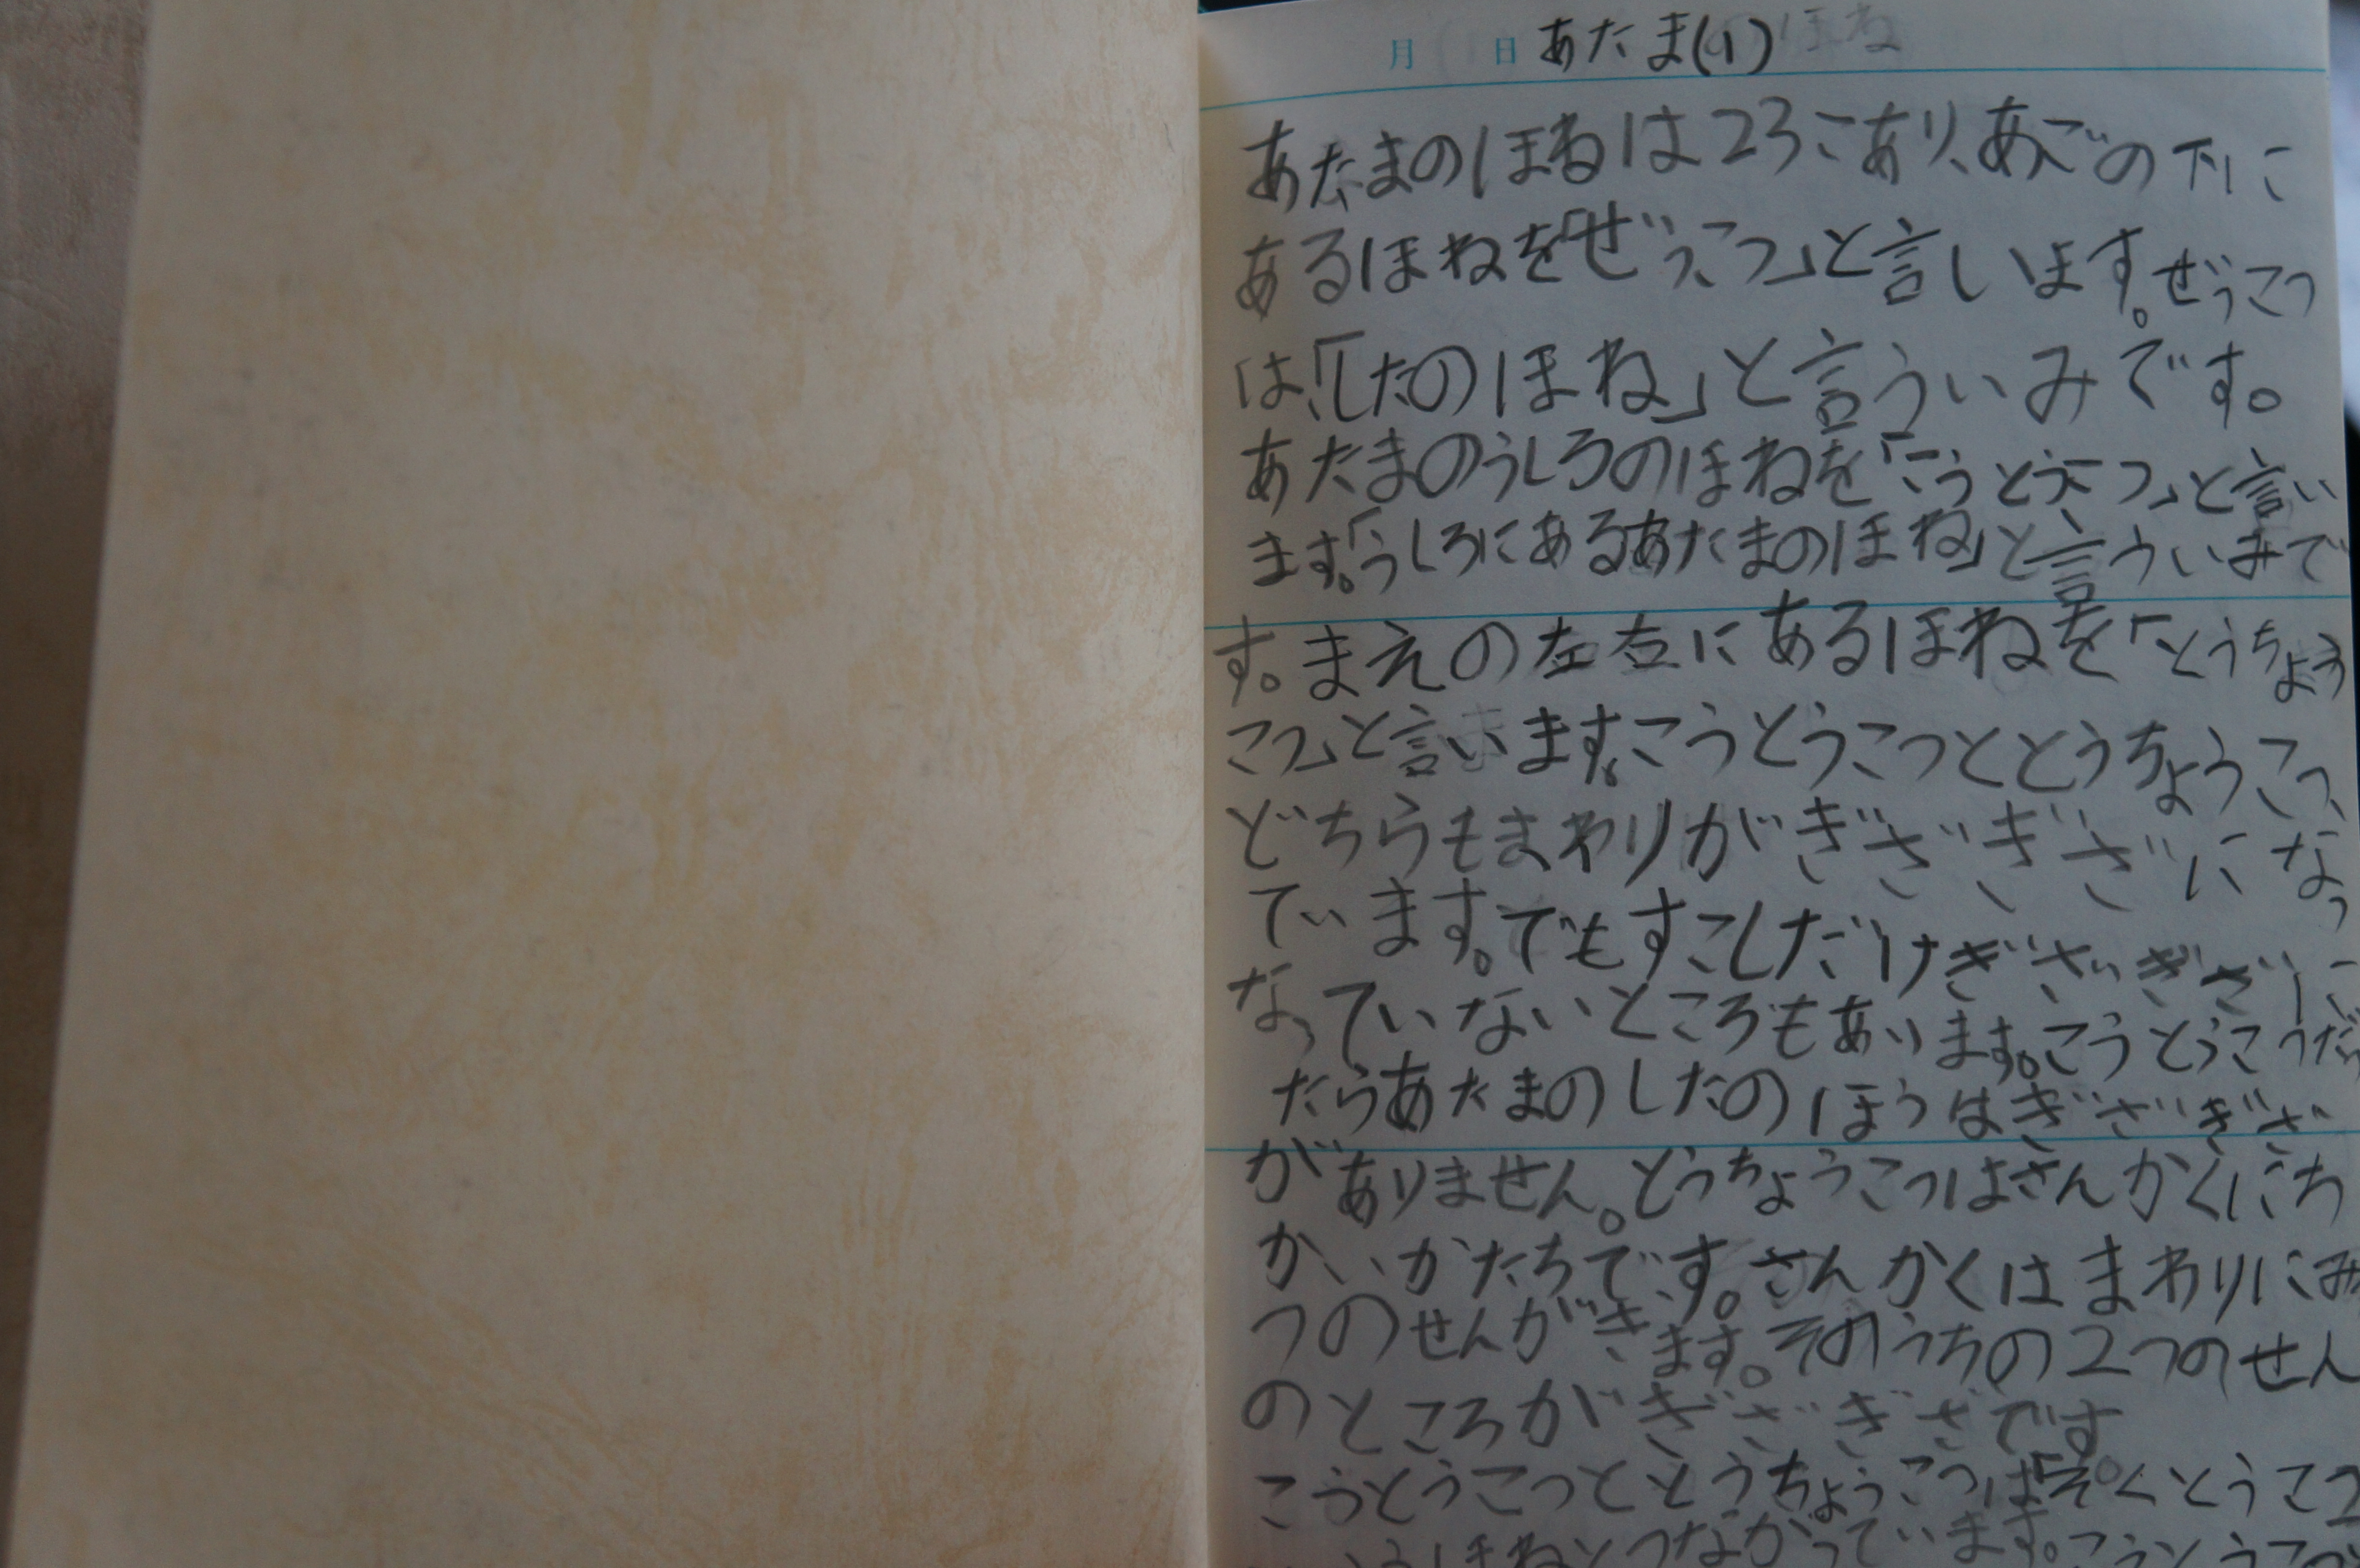 月 日 あたま(1)
あたまのほねは23こあり、あごの下に
あるほねを「ぜっこつ」と言います。ぜっこつ
は、「したのほね」と言ういみです。
あたまのうしろのほねを「こうとうこつ」と言い
ます。「うしろにあるあたまのほね」と言ういみで
す。まえの左右にあるほねを「とうちょう
こつ」と言います。こうとうこつととうちょうこつ、
どちらもまわりがぎざぎざになっ
ています。でもすこしだけぎざぎざに
なっていないところもあります。こうとうこつだっ
たらあたまのしたのほうはぎざぎざ
がありません。とうちょうこつはさんかくにち
かいかたちです。さんかくはまわりにみ
つのせんがきます。そのうちの2つのせん
のところがぎざぎざです。
こうとうこつととうちょうこつは「そくとうこつ
ほねとつながっています。こうとうこつ